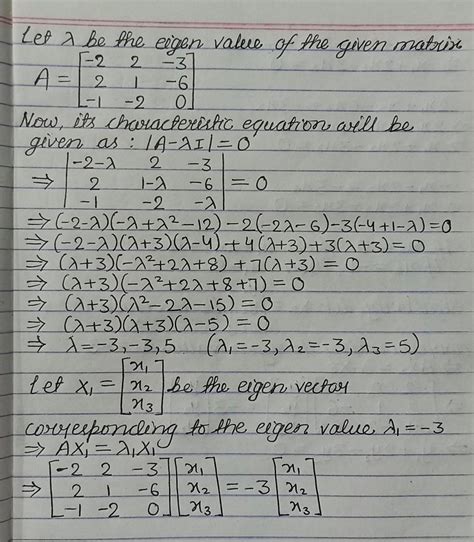 Let λ be the eigen value of the given matrix
A = [-2 2 -3
2 1 -6
-1 -2 0]
Now, its characteristic equation will be
given as : |A-λI|=0
⇒ |-2-λ 2 -3
2 1-λ -6
-1 -2 -λ| = 0
⇒ (-2-λ)(-λ+λ²-12) - 2(-2λ-6) - 3(-4+1-λ)=0
⇒ (-2-λ)(λ+3)(λ-4) + 4(λ+3)+3(λ+3) = 0
⇒ (λ+3)(-λ²+2λ+8) + 7(λ+3) = 0
⇒ (λ+3)(-λ²+2λ+8+7) = 0
⇒ (λ+3)(λ²-2λ-15) = 0
⇒ (λ+3)(λ+3)(λ-5) = 0
⇒ λ=-3,-3,5 (λ₁=-3, λ₂=-3, λ₃=5)
Let X₁ = [x₁
x₂
x₃] be the eigen vector
corresponding to the eigen value λ₁=-3
⇒ AX₁ = λ₁X₁
⇒ [-2 2 -3
2 1 -6
-1 -2 0] [x₁
x₂
x₃] = -3 [x₁
x₂
x₃]